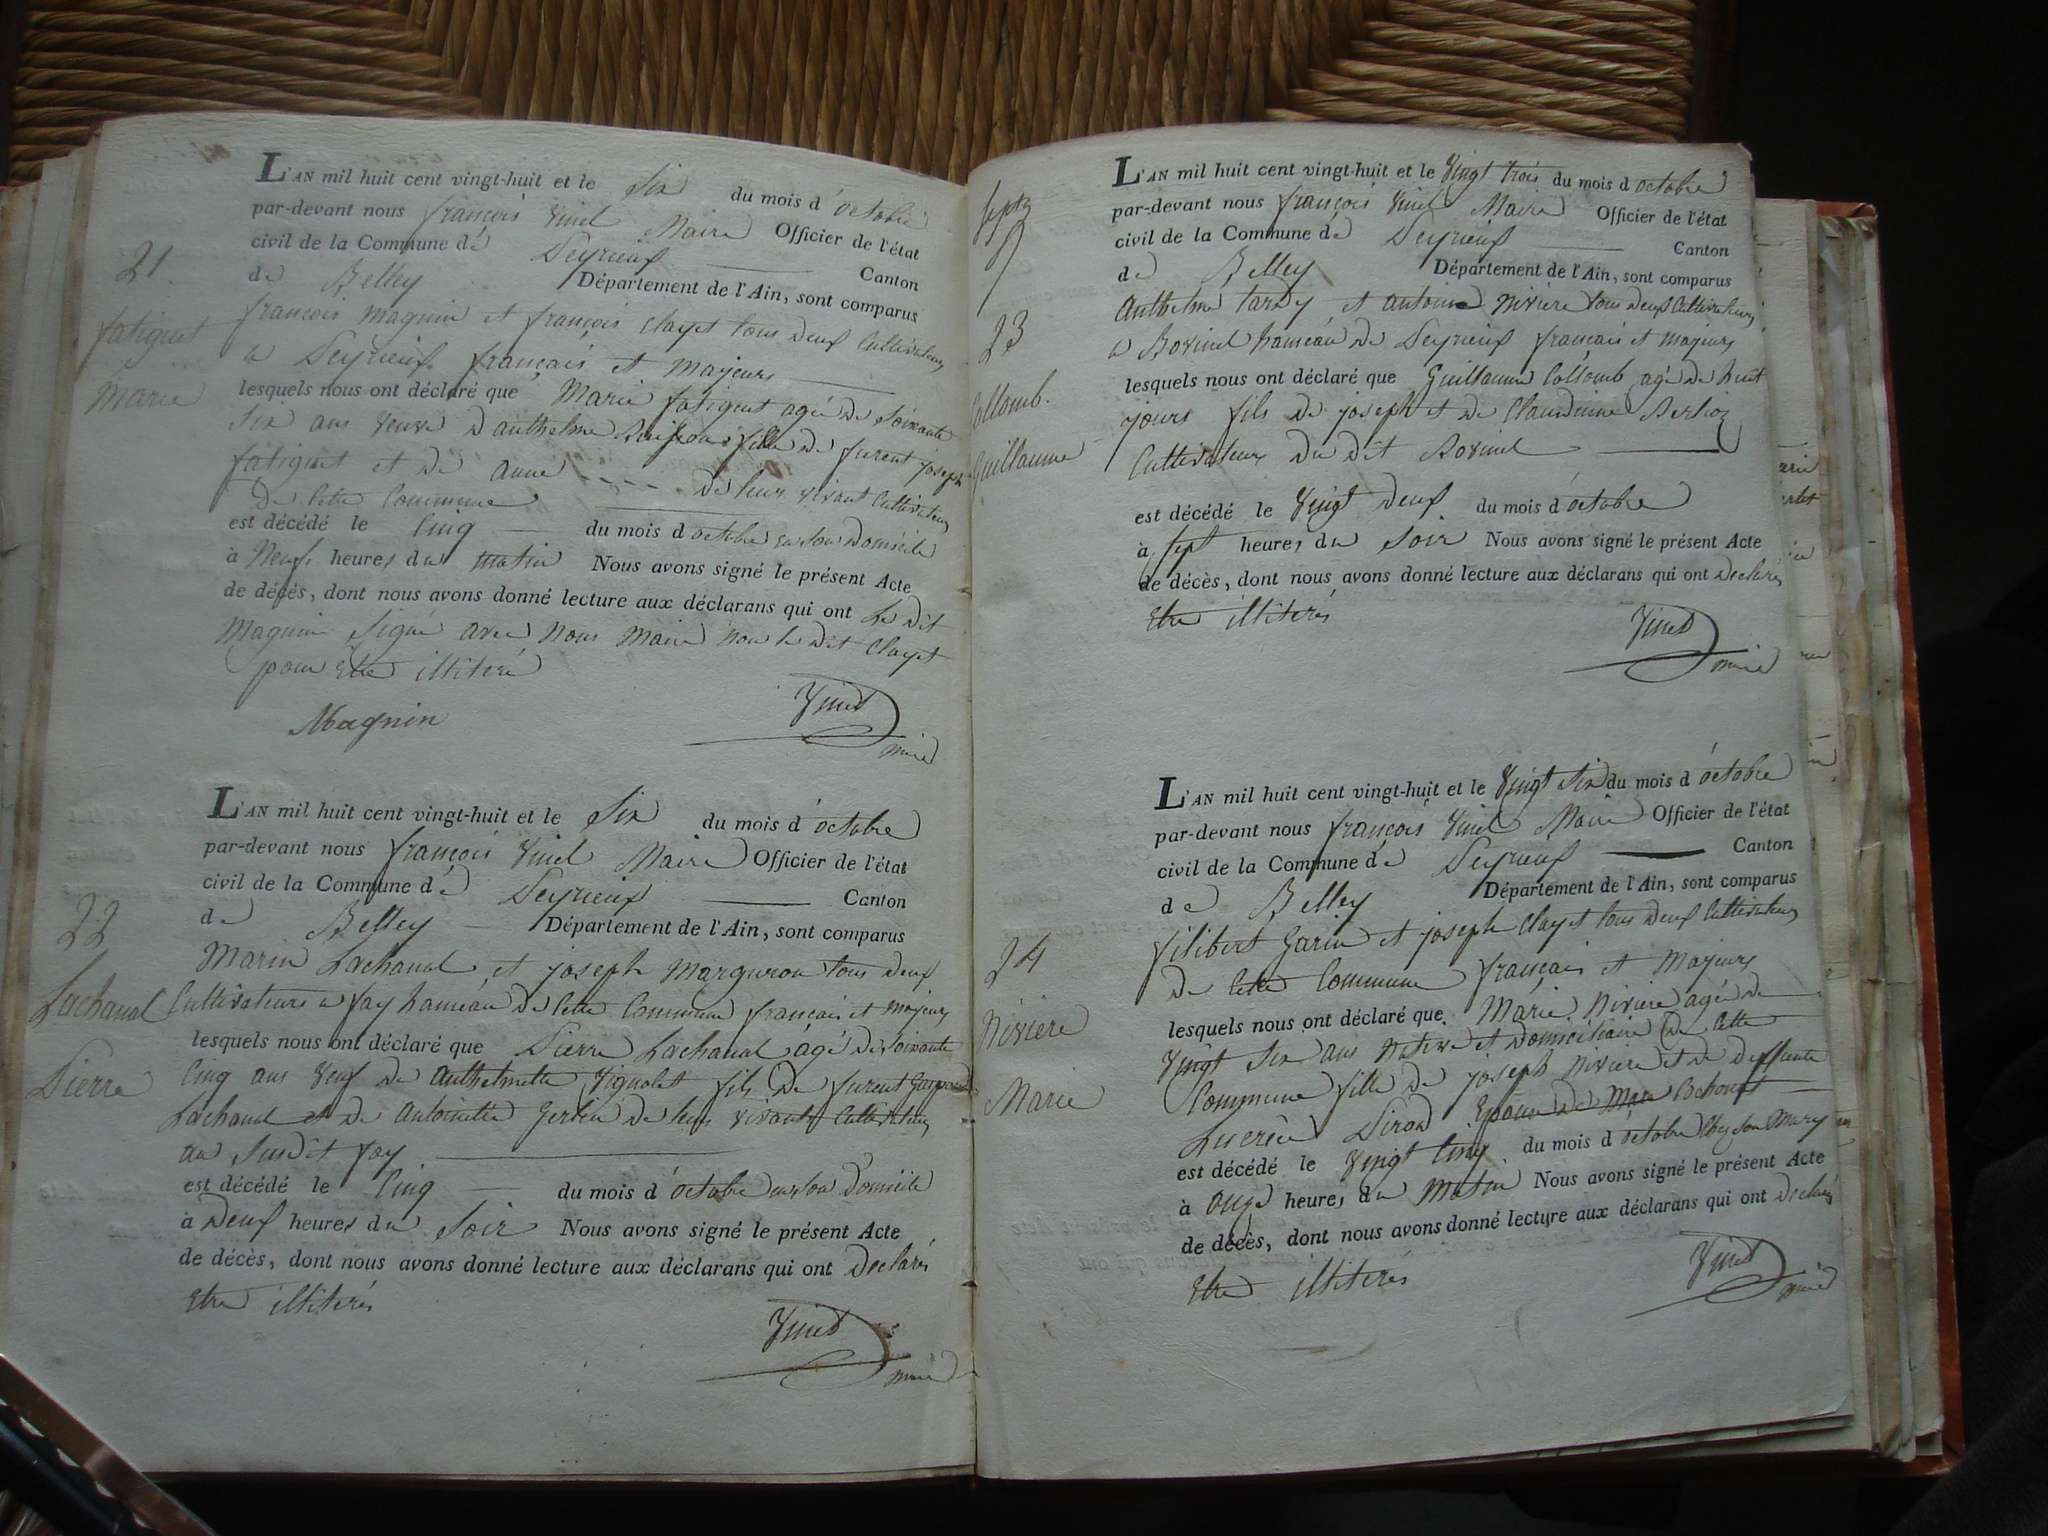 21
fatiguet
marie
L'AN mil huit cent vingt-huit et le Six du mois d'octobre
par-devant nous françois Vinet Maire Officier de l'état
civil de la Commune de Peyrieux Canton
de Belley Département de l'Ain, sont comparus
françois magnin et françois Clayet tous deux Cultivateurs
a Peyrieux français et majeurs
lesquels nous ont déclaré que Marie fatiguet agée de Soixante
Six ans veuve d'authelme fille de furent joseph
fatiguet et de anne de leur vivant Cultivateurs
de Cette Commune
est décédé le Cinq du mois d'octobre en son Domicile
à Neuf heures du matin Nous avons signé le présent Acte
de décès, dont nous avons donné lecture aux déclarans qui ont Le dit
Magnin Signé avec Nous maire non le dit Clayet
pour Etre illiteré
Magnin
Vinet
maire
22
Lachanal
Pierre
L'AN mil huit cent vingt-huit et le Six du mois d'octobre
par-devant nous françois Vinet Maire Officier de l'état
civil de la Commune de Peyrieux Canton
de Belley Département de l'Ain, sont comparus
Marin Lachanal et joseph Marguron tous deux
Cultivateurs a fay hameau de Cette Commune français et majeurs
lesquels nous ont déclaré que Pierre Lachanal agé de soixante
Cinq ans veuf de Anthelmette Vignolet fils de furent Gaspard
Lachanal et de Antoinette Gerlin de leur vivant Cultivateurs
au Susdit fay
est décédé le Cinq du mois d'octobre en son Domicile
à Deux heures du Soir Nous avons signé le présent Acte
de décès, dont nous avons donné lecture aux déclarans qui ont Declarés
Etre illiterés
Vinet
maire
23
Collomb.
Guillaume
L'AN mil huit cent vingt-huit et le Vingt trois du mois d'octobre
par-devant nous françois Vinet Maire Officier de l'état
civil de la Commune de Peyrieux Canton
de Belley Département de l'Ain, sont comparus
Anthelme tardy et antoine Niviere tous deux Cultivateurs
a Bovinel hameau de Peyrieux français et majeurs
lesquels nous ont déclaré que Guillaume Collomb agé de huit
jours fils de joseph et de Claudine Berlioz
Cultivateurs du dit Bovinel
est décédé le Vingt deux du mois d'octobre
à Sept heures du Soir Nous avons signé le présent Acte
de décès, dont nous avons donné lecture aux déclarans qui ont Declarés
Etre illiterés
Vinet
maire
24
Niviere
Marie
L'AN mil huit cent vingt-huit et le Vingt Six du mois d'octobre
par-devant nous françois Vinet Maire Officier de l'état
civil de la Commune de Peyrieux Canton
de Belley Département de l'Ain, sont comparus
filibert Garin et joseph Clayet tous deux Cultivateurs
de Cette Commune français et majeurs
lesquels nous ont déclaré que Marie Niviere agée de
Vingt Six ans Native et domiciliaire de Cette
Commune fille de joseph Niviere et de deffunte
Lucrèce Pirod Epouse de
est décédé le Vingt Cinq du mois d'octobre Chez son Mary
à onze heures du Matin Nous avons signé le présent Acte
de décès, dont nous avons donné lecture aux déclarans qui ont Declarés
Etre illiterés
Vinet
maire